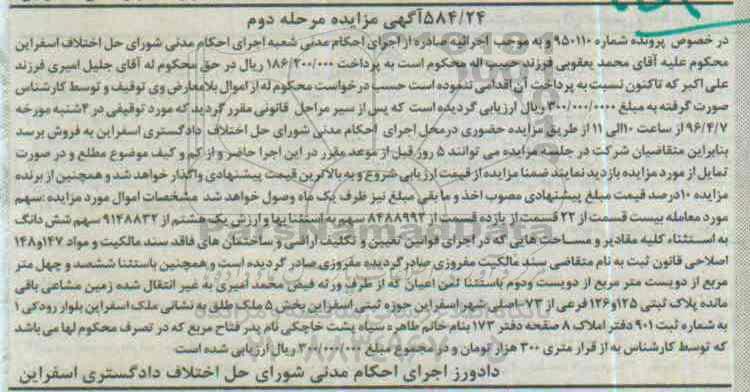 ۵۸۴/۲۴آگهی مزایده مرحله دوم
در خصوص پرونده شماره ۹۵۰۱۱۰ و به موجب اجرائیه صادره از اجرای احکام مدنی شعبه اجرای احکام مدنی شورای حل اختلاف اسفراین
محکوم علیه آقای محمد یعقوبی فرزند حبیب اله محکوم است به پرداخت ۱۸۶/۲۰۰/۰۰۰ ریال در حق محکوم له آقای جلیل امیری فرزند
علی اکبر که تاکنون نسبت به پرداخت آن اقدامی ننموده است حسب درخواست محکوم له از اموال بلامعارض وی توقیف و توسط کارشناس
صورت گرفته به مبلغ ۳۰۰/۰۰۰/۰۰۰ ریال ارزیابی گردیده است که پس از سیر مراحل قانونی مقرر گردید که مورد توقیفی در ۴شنبه مورخه
۹۶/۴/۷ از ساعت ۱۰الی ۱۱ از طریق مزایده حضوری درمحل اجرای احکام مدنی شورای حل اختلاف دادگستری اسفراین به فروش برسد
بنابراین متقاضیان شرکت در جلسه مزایده می توانند ۵ روز قبل از موعد مقرر در این اجرا حاضر و از کم و کیف موضوع مطلع و در صورت
تمایل از مورد مزایده بازدید نمایند ضمنا مزایده از قیمت ارزیابی شروع و به بالاترین قیمت پیشنهادی واگذار خواهد شد و همچنین از برنده
مزایده ۱۰درصد قیمت مبلغ پیشنهادی مصوب اخذ و مابقی مبلغ نیز ظرف یک ماه وصول خواهد شد مشخصات اموال مورد مزایده :سهم
مورد معامله بیست قسمت از ۲۲ قسمت از یازده قسمت از ۸۴۸۸۹۹۳ سهم به استثنا بها و ارزش یک هشتم از ۹۱۴۸۸۳۲ سهم شش دانگ
به استثناء کلیه مقادیر و مساحت هایی که در اجرای قوانین تعیین و تکلیف اراضی و ساختمان های فاقد سند مالکیت و مواد ۱۴۷و۱۴۸
اصلاحی قانون ثبت به نام متقاضی سند مالکیت مفروزی صادر گردیده مفروزی صادر گردیده است و همچنین باستثنا ششصد و چهل متر
مربع از دویست متر مربع از دویست ودوم باستثنا ثمن اعیان که از طرف ورثه فیض محمد امیری به غیر انتقال شده زمین مشاعی باقی
مانده پلاک ثبتی ۱۲۵و۱۲۶ فرعی از ۷۳-اصلی شهر اسفراین حوزه ثبتی اسفراین بخش ۵ ملک طلق به نشانی ملک اسفراین بلوار رودکی ۱
به شماره ثبت ۹۰۱ دفتر املاک ۸ صفحه دفتر ۱۷۳ بنام خانم طاهره سیاه پشت خاچکی نام پدر فتاح مربع که در تصرف محکوم لها می باشد
که توسط کارشناس به از قرار متری ۳۰۰ هزار تومان و در مجموع مبلغ ۳۰۰/۰۰۰/۰۰۰ ریال ارزیابی شده است
دادورز اجرای احکام مدنی شورای حل اختلاف دادگستری اسفراین
ParsNamadData